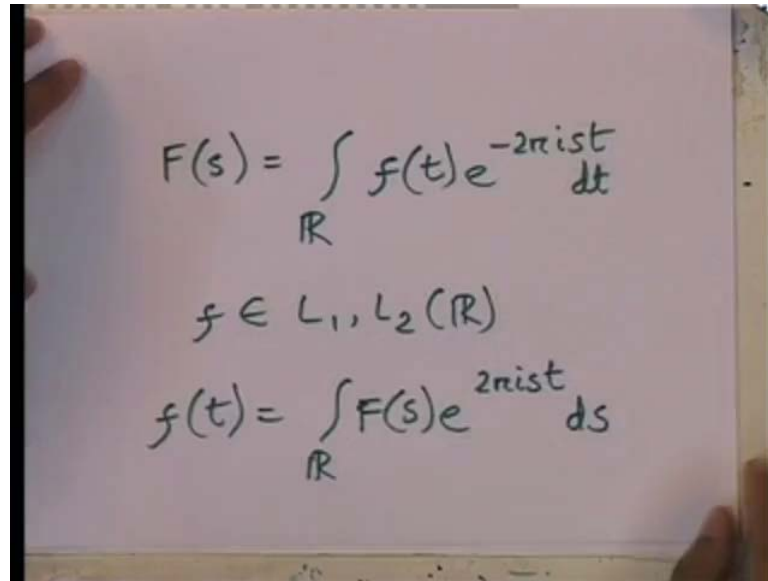 F(s) = ∫_ℝ f(t) e^{-2πist} dt
f ∈ L₁, L₂(ℝ)
f(t) = ∫_ℝ F(s) e^{2πist} ds